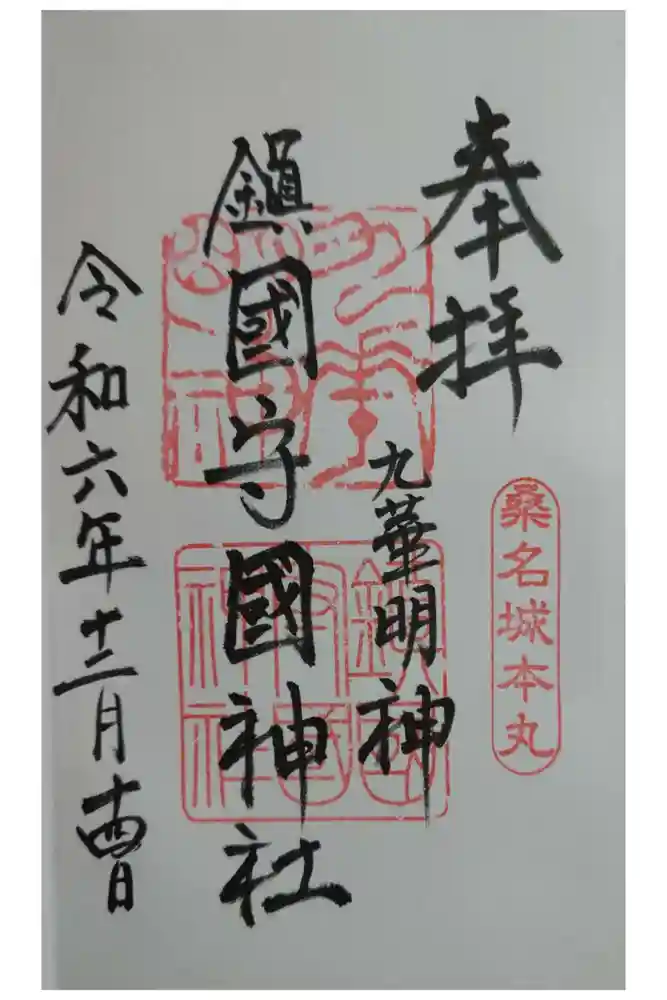 奉拝
桑名城本丸
九華明神
鎮國守國神社
令和六年十二月十四日